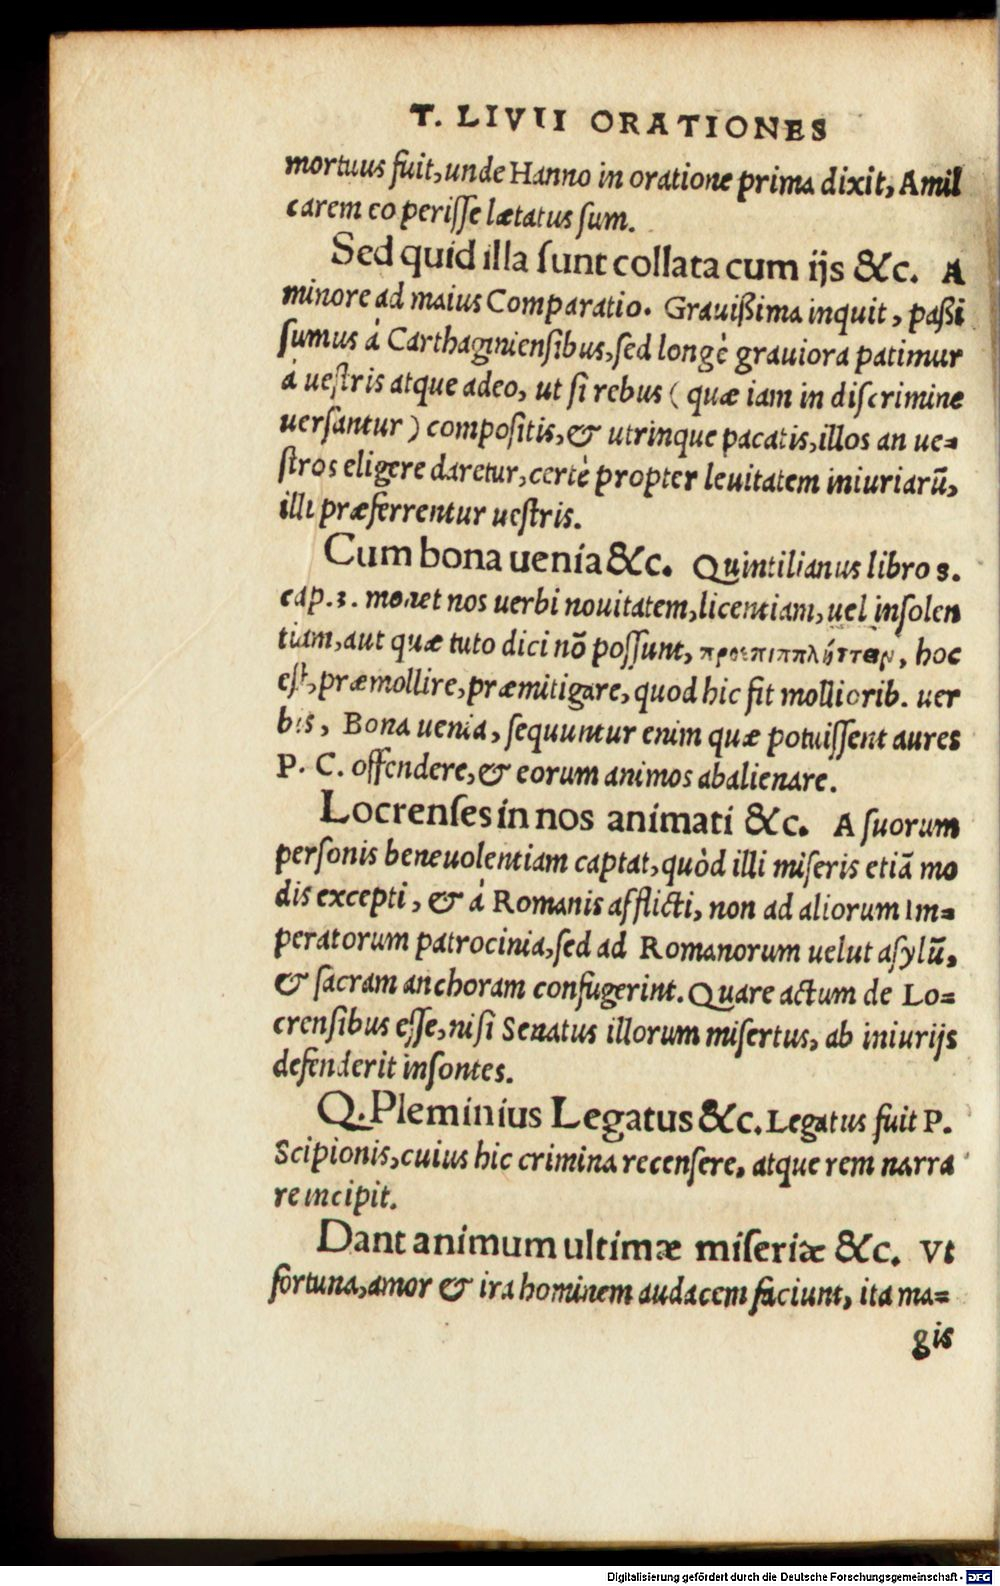 T. LIVII ORATIONES
mortuus fuit, unde Hanno in oratione prima dixit, Amil
carem eo perisse lætatus sum.
Sed quid illa sunt collata cum ijs &c. A
minore ad maius Comparatio. Grauißima inquit, paßi
sumus á Carthaginiensibus, sed longè grauiora patimur
á uestris atque adeo, ut si rebus (quæ iam in discrimine
uersantur) compositis, & utrinque pacatis, illos an ue=
stros eligere daretur, certè propter leuitatem iniuriarũ,
illi præferrentur uestris.
Cum bona uenia &c. Quintilianus libro 8.
cap. 3. monet nos uerbi nouitatem, licentiam, uel insolen
tiam, aut quæ tuto dici nõ possunt, hoc
est, præmollire, præmitigare, quod hic fit molliorib. uer
bis, Bona uenia, sequuntur enim quæ potuissent aures
P. C. offendere, & eorum animos abalienare.
Locrenses in nos animati &c. A suorum
personis beneuolentiam captat, quòd illi miseris etiã mo
dis excepti, & à Romanis afflicti, non ad aliorum Im=
peratorum patrocinia, sed ad Romanorum uelut asylũ,
& sacram anchoram confugerint. Quare actum de Lo=
crensibus esse, nisi Senatus illorum misertus, ab iniurijs
defenderit insontes.
Q. Pleminius Legatus &c. Legatus fuit P.
Scipionis, cuius hic crimina recensere, atque rem narra
re incipit.
Dant animum ultimæ miseriæ &c. Vt
fortuna, amor & ira hominem audacem faciunt, ita ma=
gis
Digitalisierung gefördert durch die Deutsche Forschungsgemeinschaft - DFG